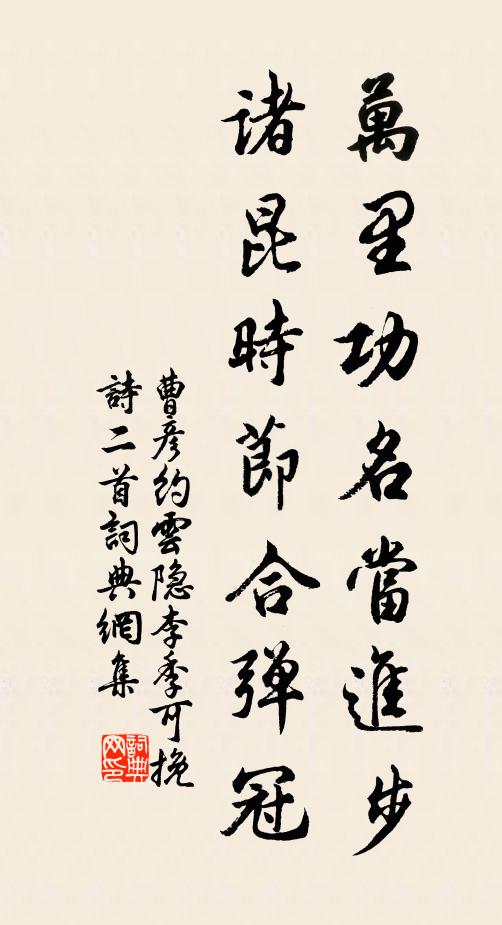 萬里功名當進步
諸昆時節合彈冠
曹彥約雲隐李季可挽
詩二首詞典網集
詞典網印